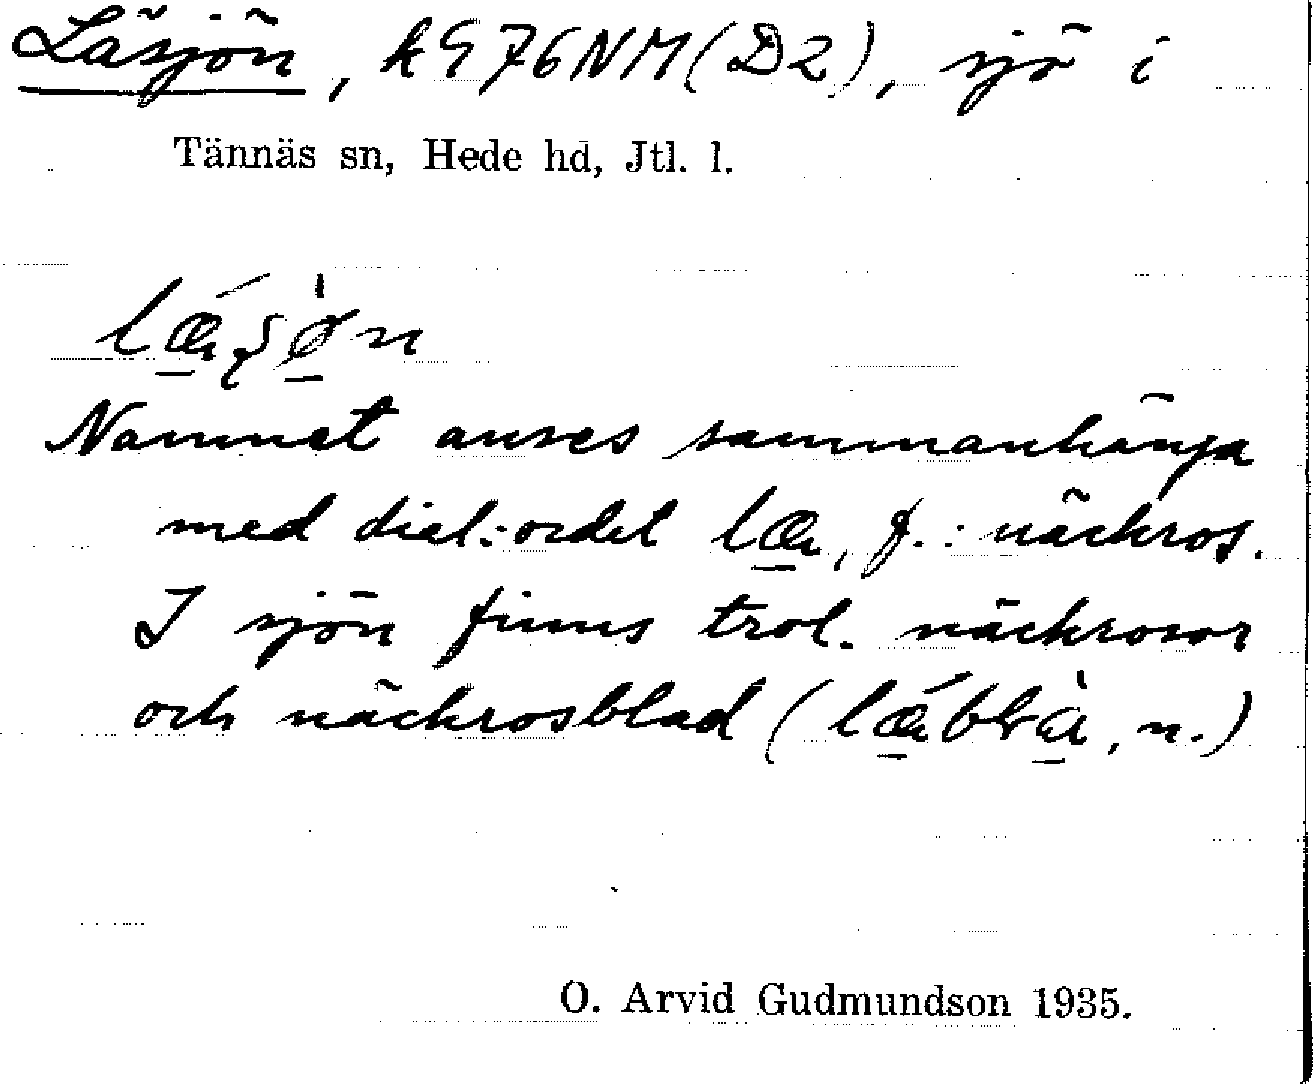 Läsjön, k976NM(D2), sjö i
Tännäs sn, Hede hd, Jtl. l.
lǽʂø̀n
Namnet anses sammanhänga
med dial.-ordet læ, f.: näckros.
I sjön finns trol. näckrosor
och näckrosblad (lǽblà, n.)
O. Arvid Gudmundson 1935.